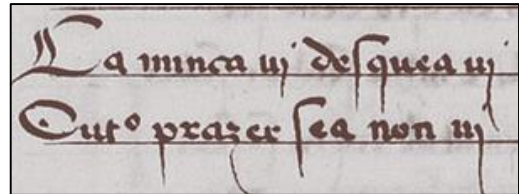 Ca nunca uj desquea uj
Outº prazer sea non uj